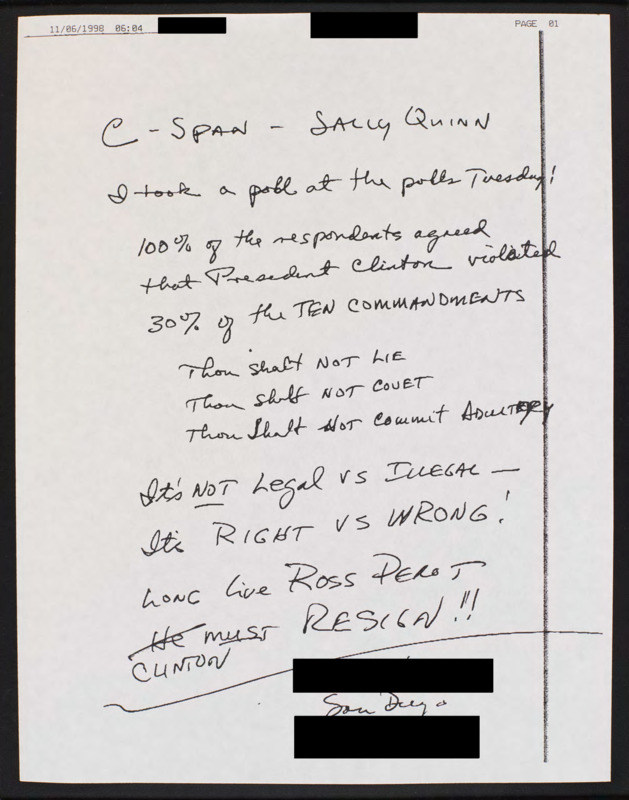 11/06/1998 06:04 PAGE 01
C - SPAN - SALLY QUINN
I took a poll at the polls Tuesday!
100% of the respondents agreed
that President Clinton violated
30% of the TEN COMMANDMENTS
Thou shalt NOT LIE
Thou shalt NOT COVET
Thou Shalt NOT Commit ADULTERY
It's NOT Legal VS ILLEGAL —
It's RIGHT VS WRONG!
LONG Live ROSS PEROT
He MUST RESIGN!!
CLINTON
San Diego